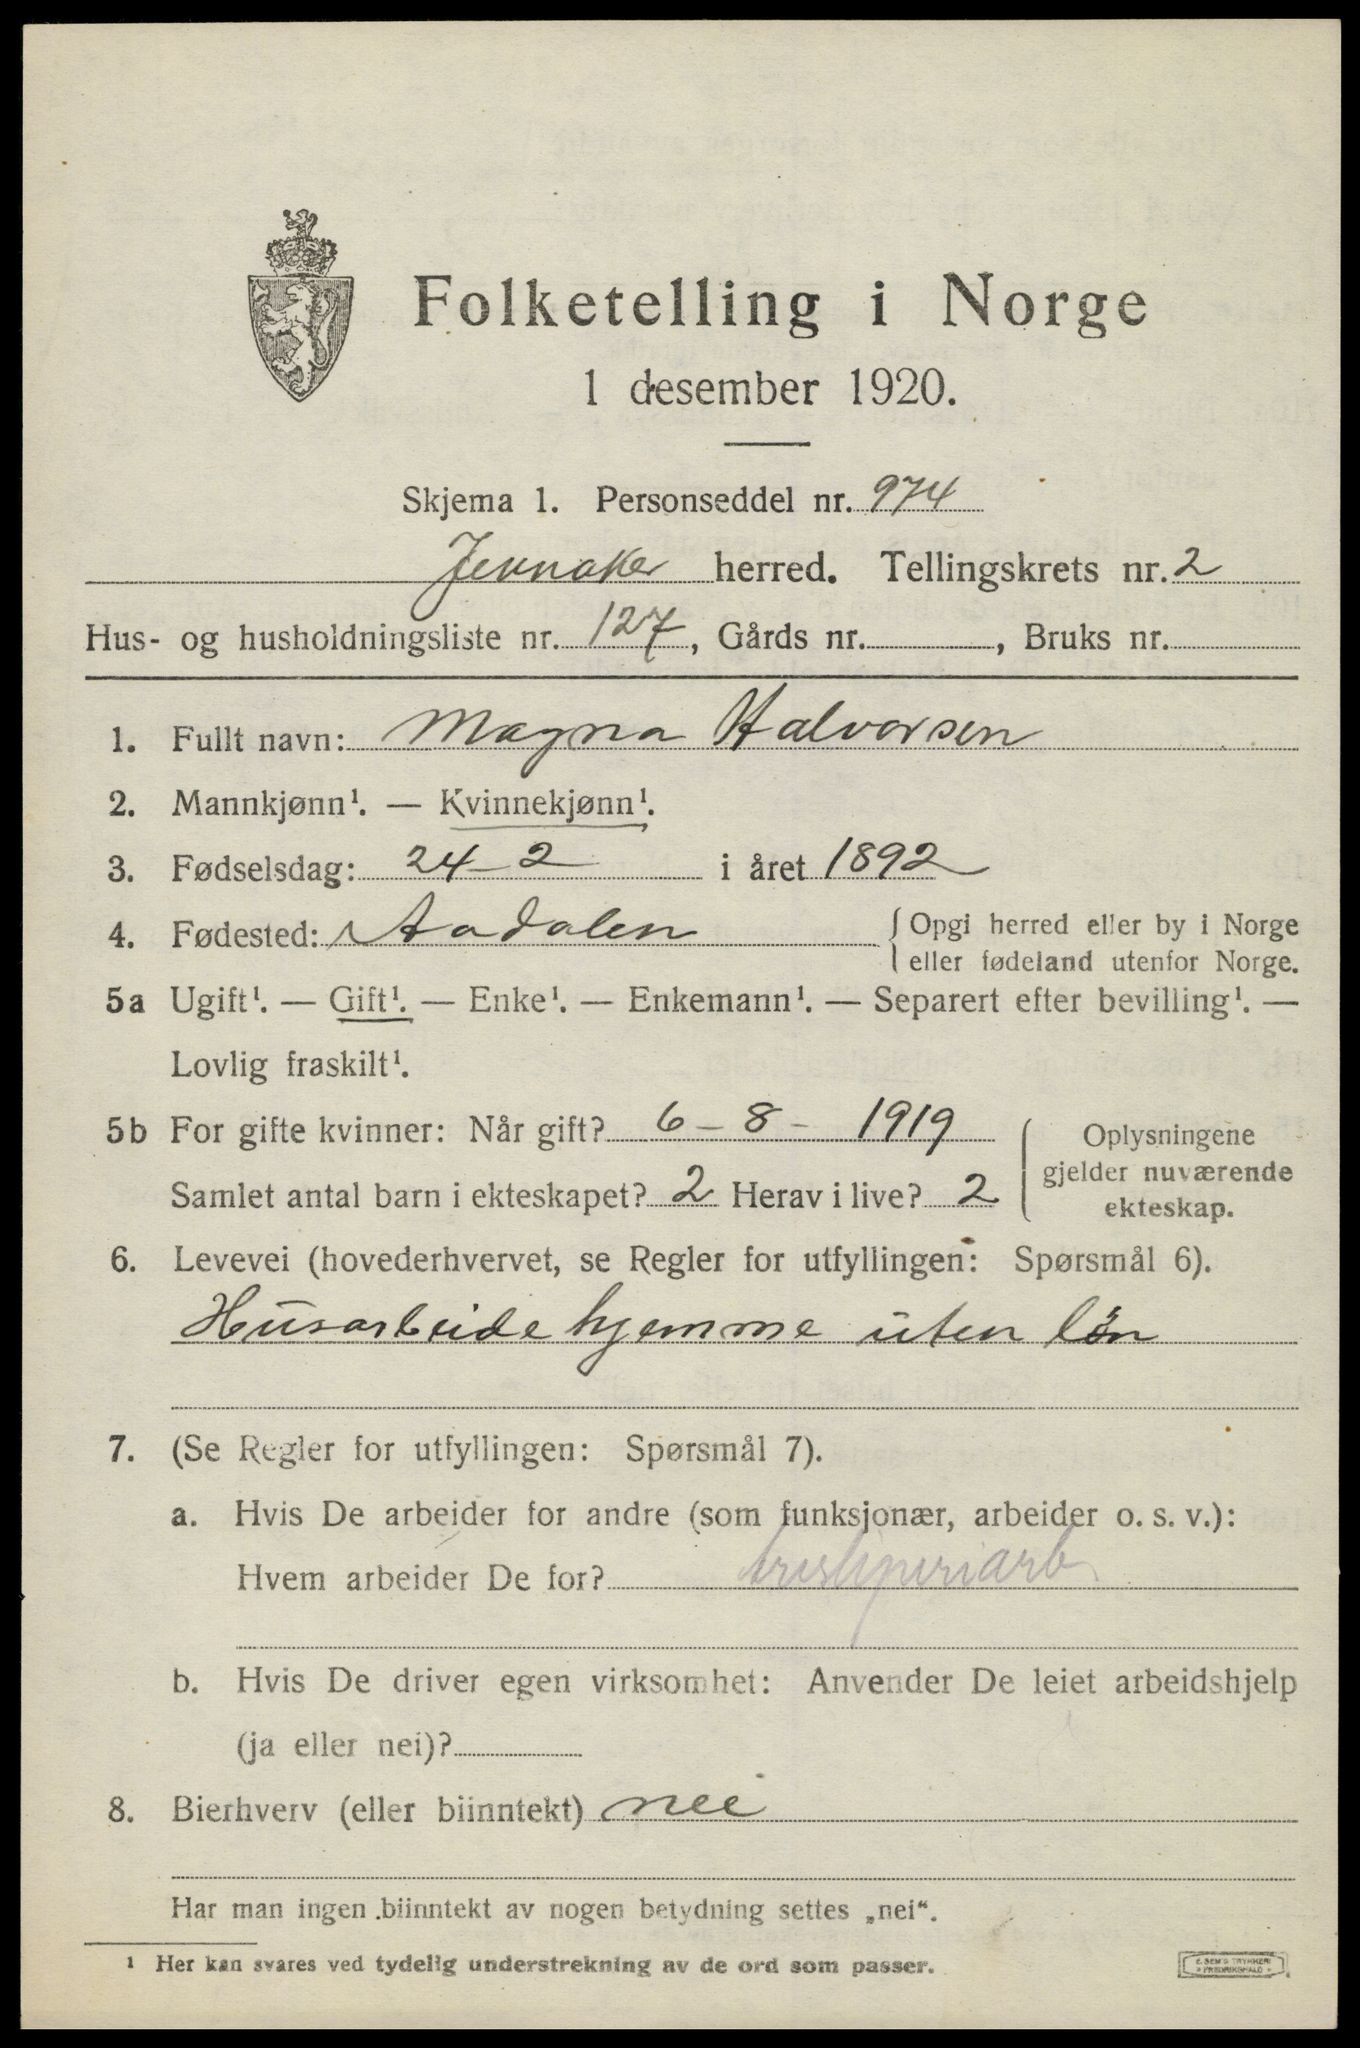 Folketelling i Norge
1 desember 1920.
Skjema 1. Personseddel nr. 974
Jevnaker herred. Tellingskrets nr. 2
Hus- og husholdningsliste nr. 127, Gårds nr. , Bruks nr.
1. Fullt navn: Magna Halvorsen
2. Mannkjønn¹. — Kvinnekjønn¹.
3. Fødselsdag: 24-2 i året 1892
4. Fødested: Aadalen { Opgi herred eller by i Norge
eller fødeland utenfor Norge.
5a Ugift¹. — Gift¹. — Enke¹. — Enkemann¹. — Separert efter bevilling¹. —
Lovlig fraskilt¹.
5b For gifte kvinner: Når gift? 6-8-1919
Samlet antal barn i ekteskapet? 2 Herav i live? 2
{ Oplysningene
gjelder nuværende
ekteskap.
6. Levevei (hovederhvervet, se Regler for utfyllingen: Spørsmål 6).
Husarbeide hjemme uten løn
7. (Se Regler for utfyllingen: Spørsmål 7).
a. Hvis De arbeider for andre (som funksjonær, arbeider o. s. v.):
Hvem arbeider De for? tresliperiarb
b. Hvis De driver egen virksomhet: Anvender De leiet arbeidshjelp
(ja eller nei)?
8. Bierhverv (eller biinntekt) nei
Har man ingen biinntekt av nogen betydning settes „nei“.
¹ Her kan svares ved tydelig understrekning av de ord som passer.
E. SEM'S TRYKKERI
FREDRIKSHALD